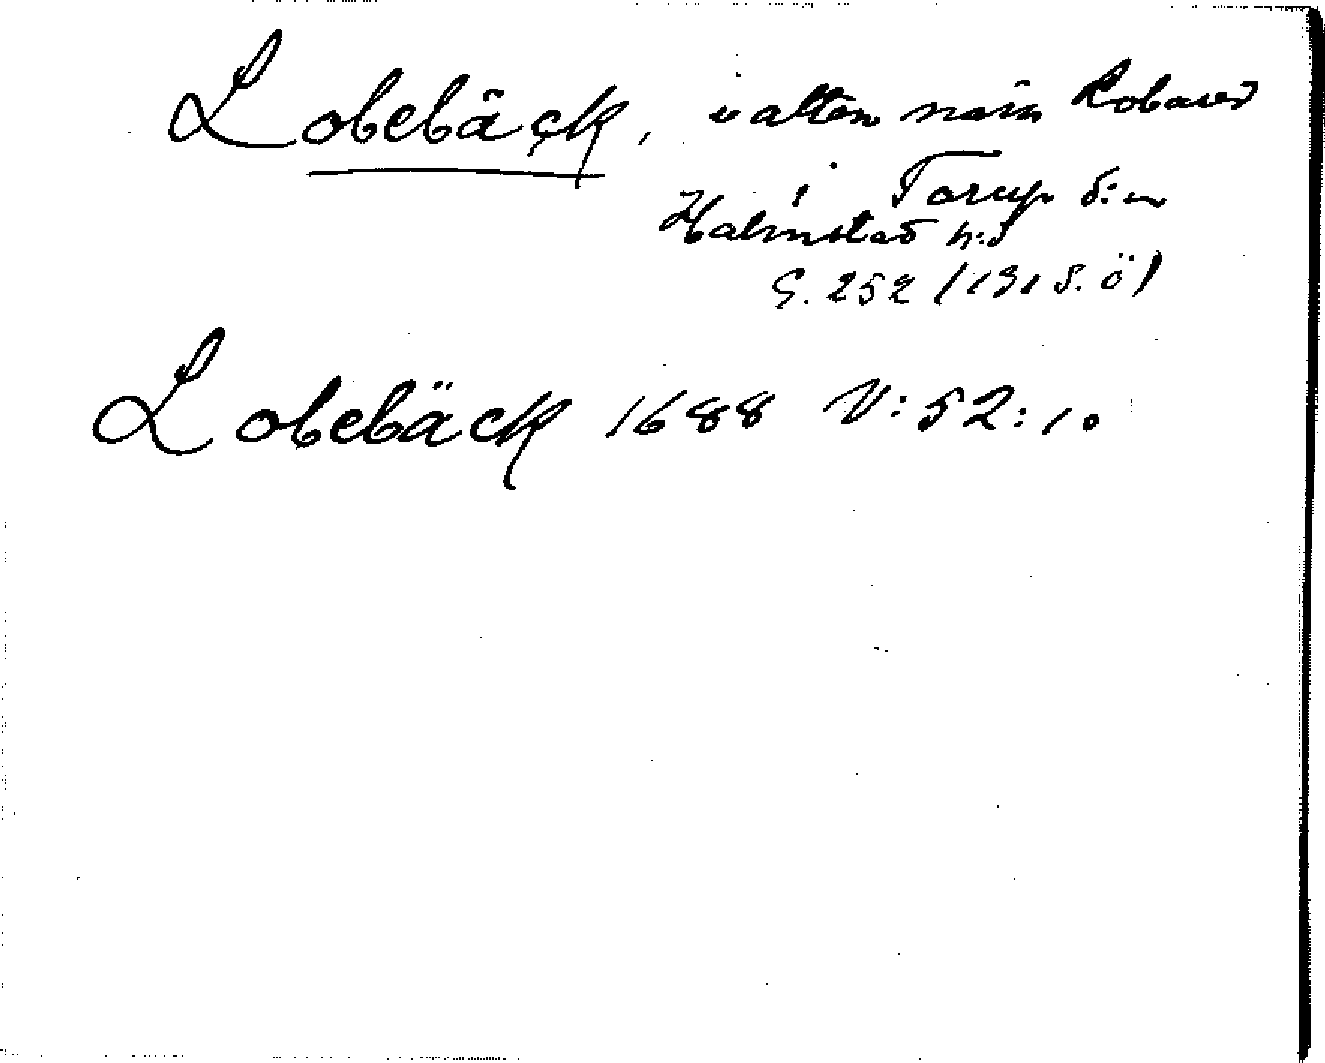 Lobebäck, vatten näm Robared
i Torup s:n
Halmstad h:d
G. 252 (131 S. ö)
Lobebäck 1688 V:52:10